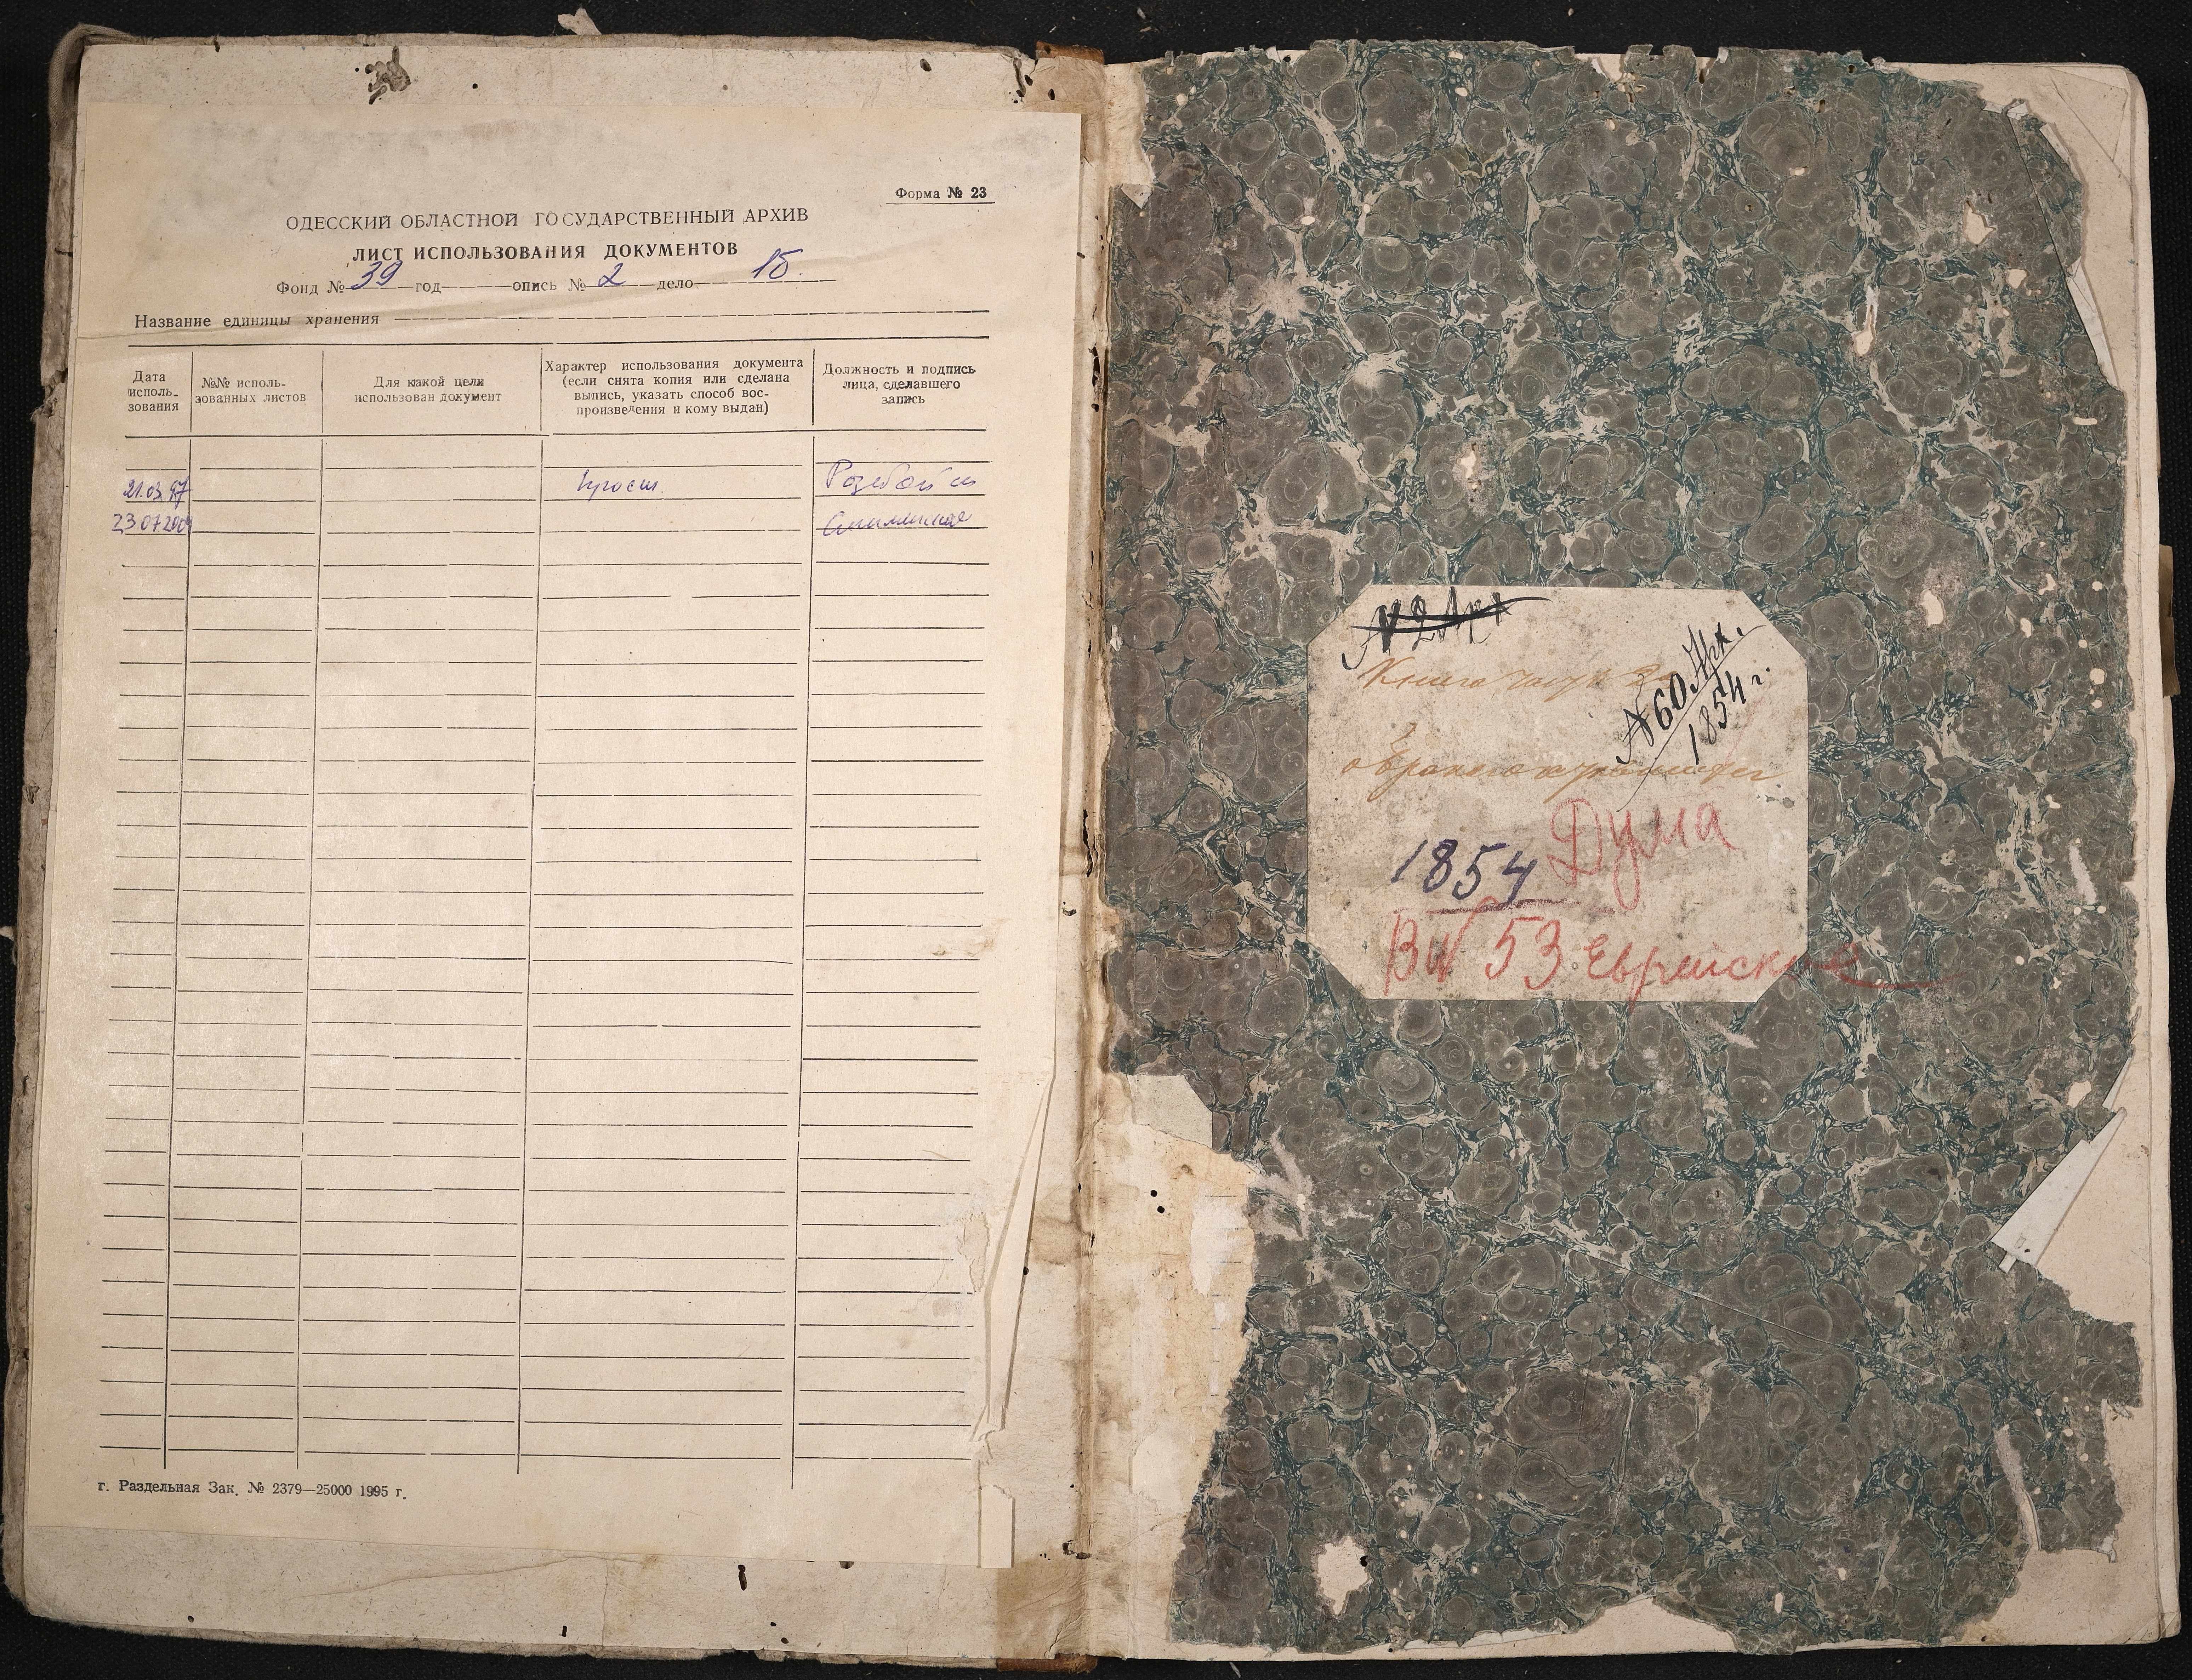 Форма № 23
ОДЕССКИЙ ОБЛАСТНОЙ ГОСУДАРСТВЕННЫЙ АРХИВ
ЛИСТ ИСПОЛЬЗОВАНИЯ ДОКУМЕНТОВ
Фонд № 39 год опись № 2 дело 15.
Название единицы хранения
Дата исполь- зования
№№ исполь- зованных листов
Для какой цели использован документ
Характер использования документа (если снята копия или сделана выпись, указать способ вос- произведения и кому выдан)
Должность и подпись лица, сделавшего запись
21.03.97 просм.
23.07.2004
г. Раздельная Зак. № 2379—25000 1995 г.
№ 2 Арх
Книга часть 2
№ 60 Арх.
1854 г.
о бракосочетавшихся
Дума
1854
53 Еврейские